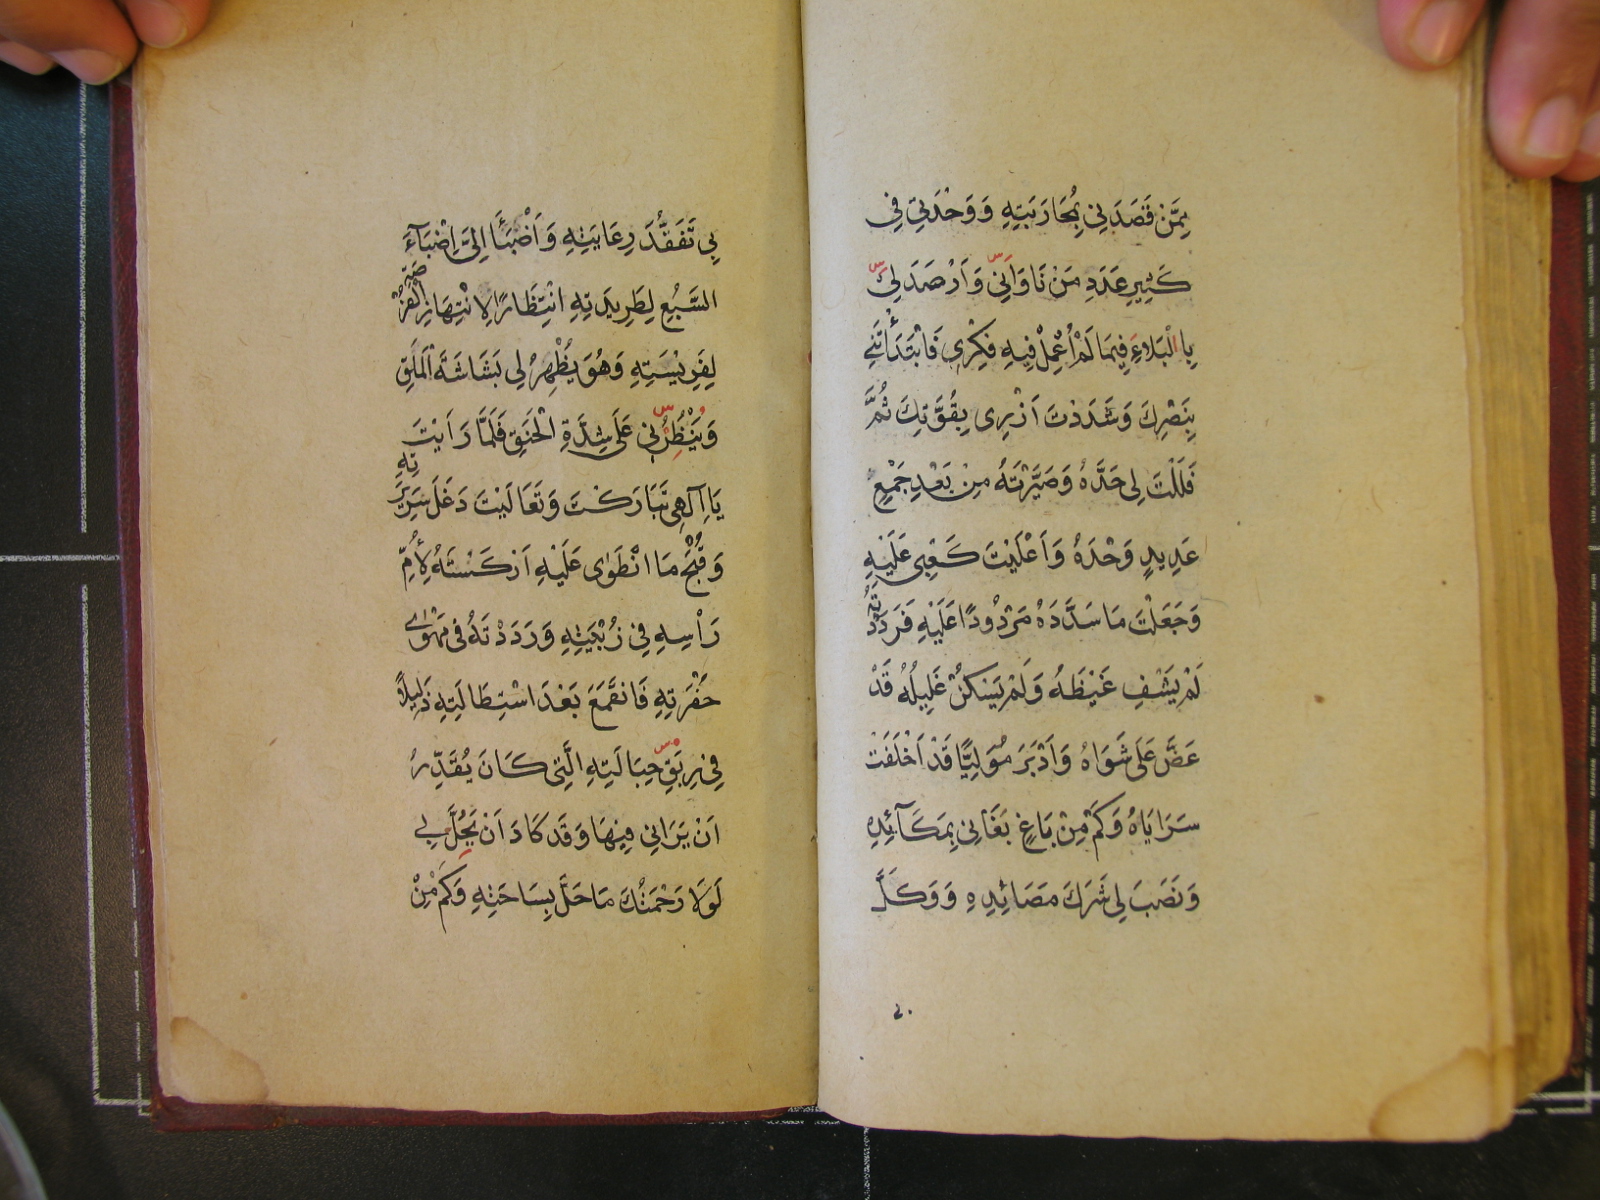 مِمَّنْ قَصَدَنِي بِمُحَارَبَتِهِ وَوَحْدَتِي فِي
كَثِيرِ عَدَدِ مَنْ نَاوَانِّي وَاَرْصَدَ لِيْ
بِالْبَلَاءِ فِيمَا لَمْ اُعْمِلْ فِيهِ فِكْرِي فَابْتَدَأْتَنِي
بِنَصْرِكَ وَشَدَدْتَ اَزْرِى بِقُوَّتِكَ ثُمَّ
فَلَلْتَ لِى حَدَّهُ وَصَيَّرْتَهُ مِنْ بَعْدِ جَمْعٍ
عَدِيدٍ وَحْدَهُ وَاَعْلَيْتَ كَعْبِى عَلَيْهِ
وَجَعَلْتَ مَا سَدَّدَهُ مَرْدُودًا عَلَيْهِ فَرَدَدْتَهُ
لَمْ يَشْفِ غَيْظَهُ وَلَمْ يَسْكُنْ غَلِيلُهُ قَدْ
عَضَّ عَلَى شَوَاهُ وَاَدْبَرَ مُوَلِيًّا قَدْ اَخْلَفَتْ
سَرَايَاهُ وَكَمْ مِنْ بَاغٍ بَغَانِى بِمَكَآئِدِهِ
وَنَصَبَ لِى شَرَكَ مَصَائِدِهِ وَوَكَّلَ
بِي تَفَقُّدَ رِعَايَتِهِ وَاَضْبَأَ اِلَىَّ اِضْبَآءَ
السَّبُعِ لِطَرِيدَتِهِ انْتِظَارًا لِانْتِهَازِ الْفُرْصَةِ
لِفَرِيسَتِهِ وَهُوَ يُظْهِرُ لِى بَشَاشَةَ الْمَلَقِ
وَيَنْظُرُنِي عَلَى شِدَّةِ الْحَنَقِ فَلَمَّا رَاَيْتَ
يَا اِلَهِى تَبَارَكْتَ وَتَعَالَيْتَ دَغَلَ سَرِيرَتِهِ
وَقُبْحَ مَا انْطَوٰى عَلَيْهِ اَرْكَسْتَهُ لِأُمِّ
رَاْسِهِ فِي زُبْيَتِهِ وَرَدَدْتَهُ فِى مَهْوٰى
حُفْرَتِهِ فَانْقَمَعَ بَعْدَ اسْتِطَالَتِهِ ذَلِيلًا
فِي رِبَقِ حِبَالَتِهِ الَّتِى كَانَ يُقَدِّرُ
اَنْ يَرَانِى فِيهَا وَقَدْ كَادَ اَنْ يَحُلَّ بِى
لَوْلَا رَحْمَتُكَ مَا حَلَّ بِسَاحَتِهِ وَكَمْ مِنْ